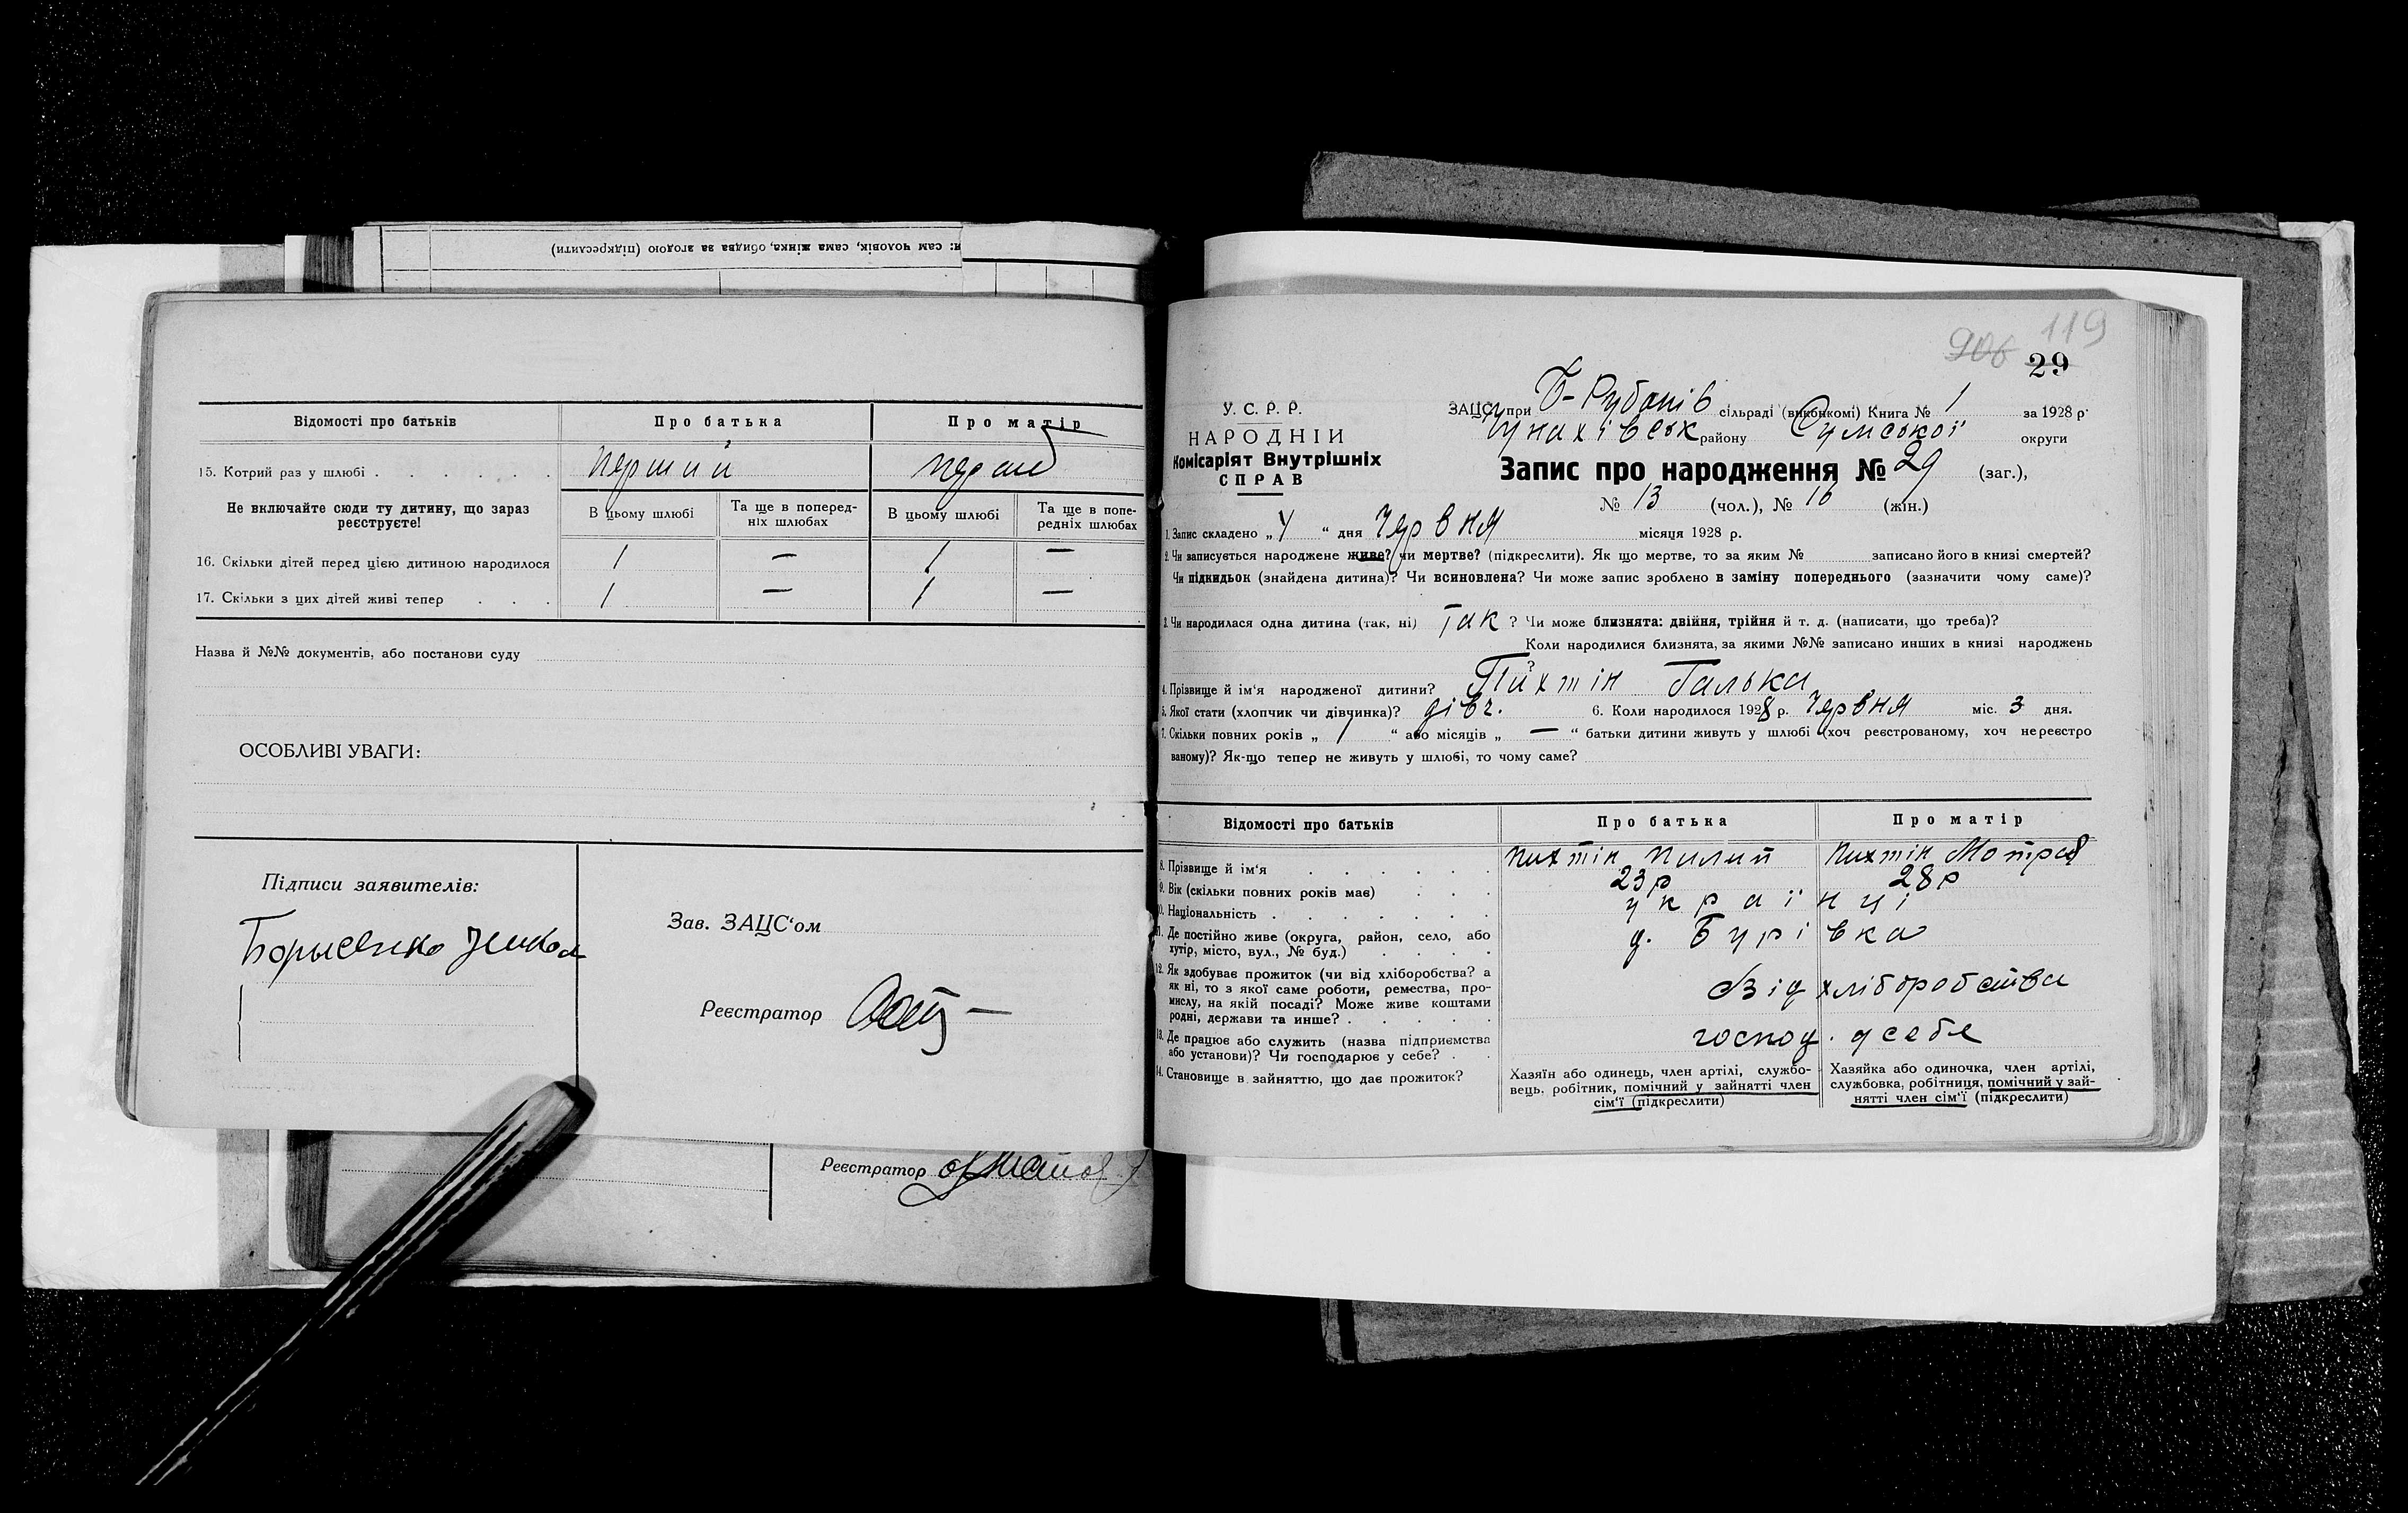 я: сам чоловік, сама жінка, обидва за згодою (підкреслити)
Відомості про батьків Про батька Про матір
15. Котрий раз у шлюбі перший перш
Не включайте сюди ту дитину, що зараз реєструєте!
В цьому шлюбі Та ще в попередніх шлюбах В цьому шлюбі Та ще в попередніх шлюбах
16. Скільки дітей перед цією дитиною народилося 1 — 1 —
17. Скільки з цих дітей живі тепер 1 — 1 —
Назва й №№ документів, або постанови суду
ОСОБЛИВІ УВАГИ:
Підписи заявителів:
Борисенко
Зав. ЗАЦС‘ом
Реєстратор
Реєстратор
906 119
29
У. С. Р. Р.
НАРОДНІЙ
Комісаріят Внутрішніх
СПРАВ
ЗАЦС при Б-Рубанів сільраді (виконкомі) Книга № 1 за 1928 р.
Гунахівськ району Сумської округи
Запис про народження № 29 (заг.),
№ 13 (чол.), № 16 (жін.)
1. Запис складено „4“ дня Червня місяця 1928 р.
2. Чи записується народжене живе? чи мертве? (підкреслити). Як що мертве, то за яким № записано його в книзі смертей?
Чи підкидьок (знайдена дитина)? Чи всиновлена? Чи може запис зроблено в заміну попереднього (зазначити чому саме)?
3. Чи народилася одна дитина (так, ні) Так ? Чи може близнята: двійня, трійня й т. д. (написати, що треба)?
Коли народилися близнята, за якими №№ записано инших в книзі народжень
?
4. Прізвище й ім‘я народженої дитини? Пихтін Галька
5. Якої стати (хлопчик чи дівчинка)? дівч. 6. Коли народилось 1928 р. Червня міс. 3 дня.
7. Скільки повних років „1“ або місяців „—“ батьки дитини живуть у шлюбі (хоч реєстрованому, хоч нереєстро
ваному)? Як-що тепер не живуть у шлюбі, то чому саме?
Відомості про батьків Про батька Про матір
8. Прізвище й ім‘я Пихтін Пилип Пихтін Мотря
9. Вік (скільки повних років має) 23 р 28 р
10. Національність українці
11. Де постійно живе (округа, район, село, або хутір, місто, вул., № буд.) д. Бурівка
12. Як здобуває прожиток (чи від хліборобства? а як ні, то з якої саме роботи, ремества, промислу, на якій посаді? Може живе коштами родні, держави та инше? Від хліборобства
13. Де працює або служить (назва підприємства або установи)? Чи господарює у себе? господ. у себе
14. Становище в зайняттю, що дає прожиток?
Хазяїн або одинець, член артілі, службовець, робітник, помічний у зайнятті член сім‘ї (підкреслити)
Хазяйка або одиночка, член артілі, службовка, робітниця, помічний у зайнятті член сім‘ї (підкреслити)